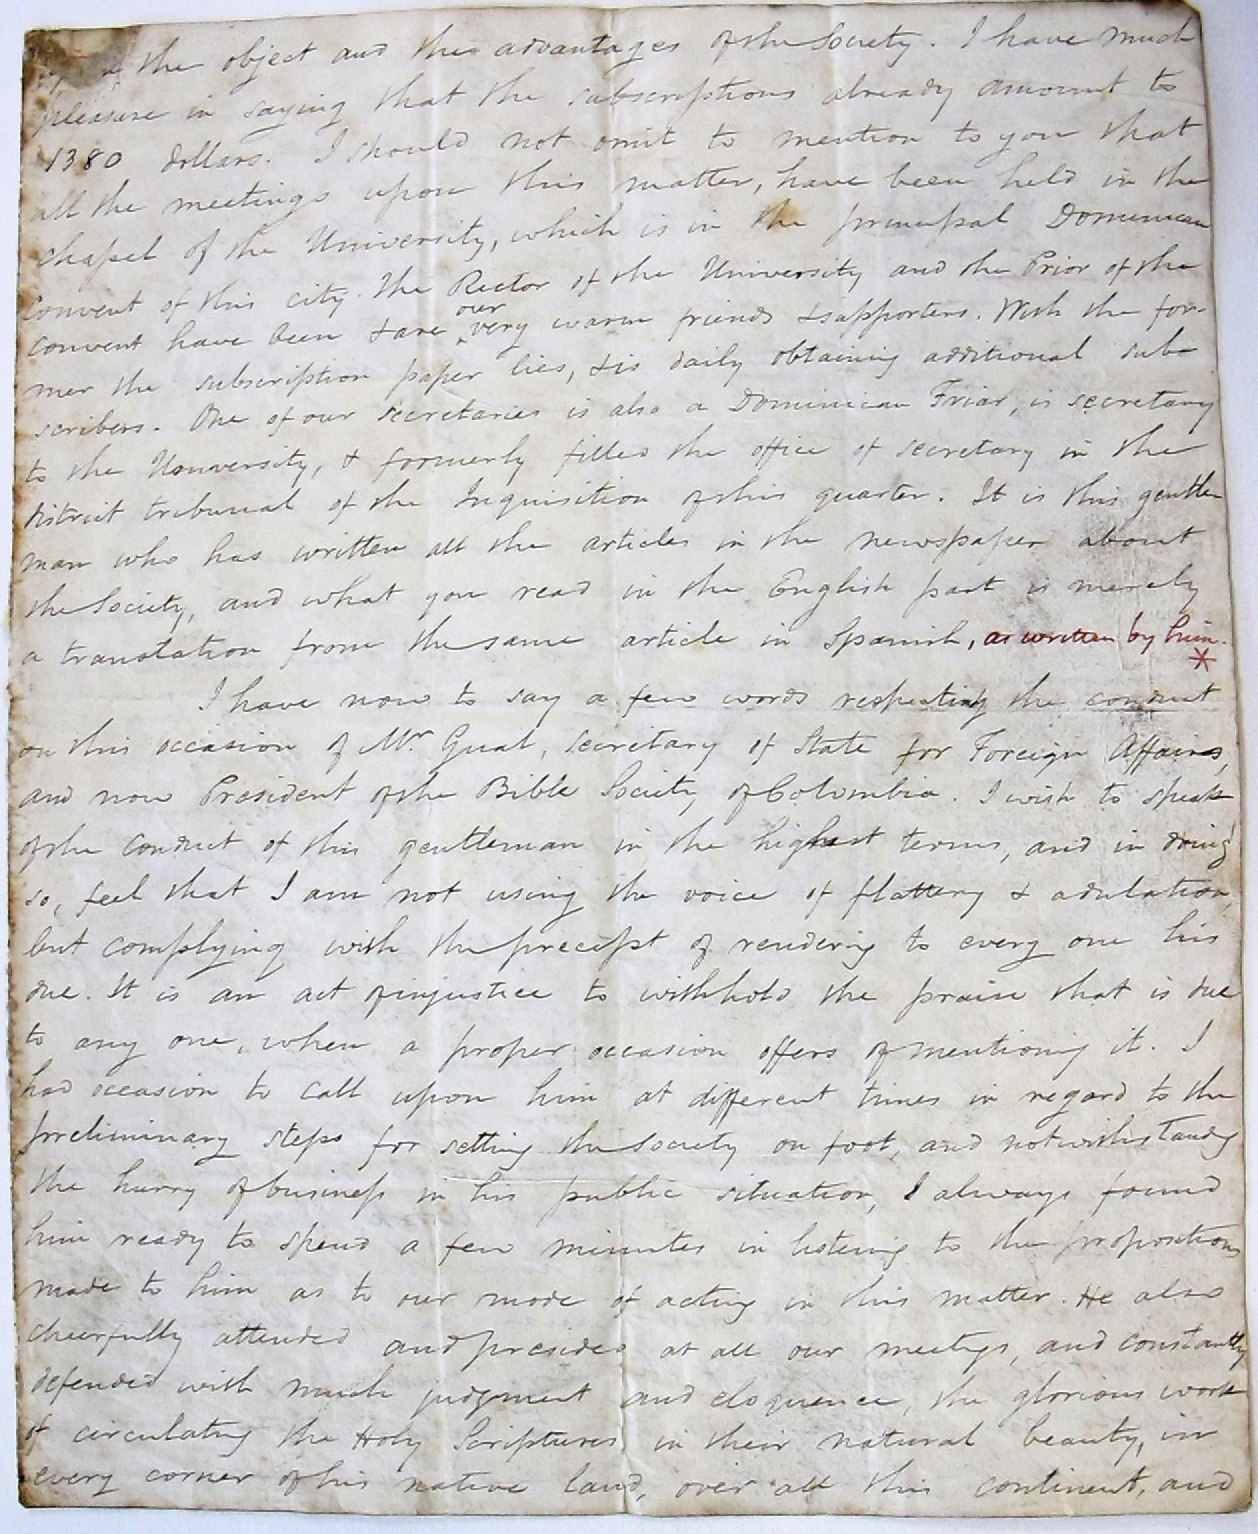 the object and the advantages of the Society. I have much
pleasure in saying that the subscriptions already amount to
1380 dollars. I should not omit to mention to you that
all the meetings upon this matter, have been held in the
chapel of the University, which is in the principal Dominican
convent of this city. The Rector of the University and the Prior of the
convent have been & are our very warm friends & supporters. With the for-
mer the subscription paper lies, & is daily obtaining additional sub-
scribers. One of our secretaries is also a Dominican Friar, is secretary
to the University, & formerly filled the office of secretary in the
district tribunal of the Inquisition of this quarter. It is this gentle
man who has written all the articles in the newspaper about
the Society, and what you read in the English part is merely
a translation from the same article in Spanish, as written by him.
*
I have now to say a few words respecting the conduct
on this occasion of Mr Gual, secretary of State for Foreign Affairs,
and now President of the Bible Society of Colombia. I wish to speak
of the conduct of this gentleman in the highest terms, and in doing
so, feel that I am not using the voice of flattery & adulation,
but complying with the precept of rendering to every one his
due. It is an act of injustice to withhold the praise that is due
to any one, when a proper occasion offers of mentioning it. I
had occasion to call upon him at different times in regard to the
preliminary steps for setting the Society on foot, and notwithstanding
the hurry of business in his public situation, I always found
him ready to spend a few minutes in listening to the propositions
made to him as to our mode of acting in this matter. He also
cheerfully attended and presided at all our meetings, and constantly
defended with much judgment and eloquence, the glorious work
of circulating the Holy Scriptures in their natural beauty, in
every corner of his native land, over all this continent, and